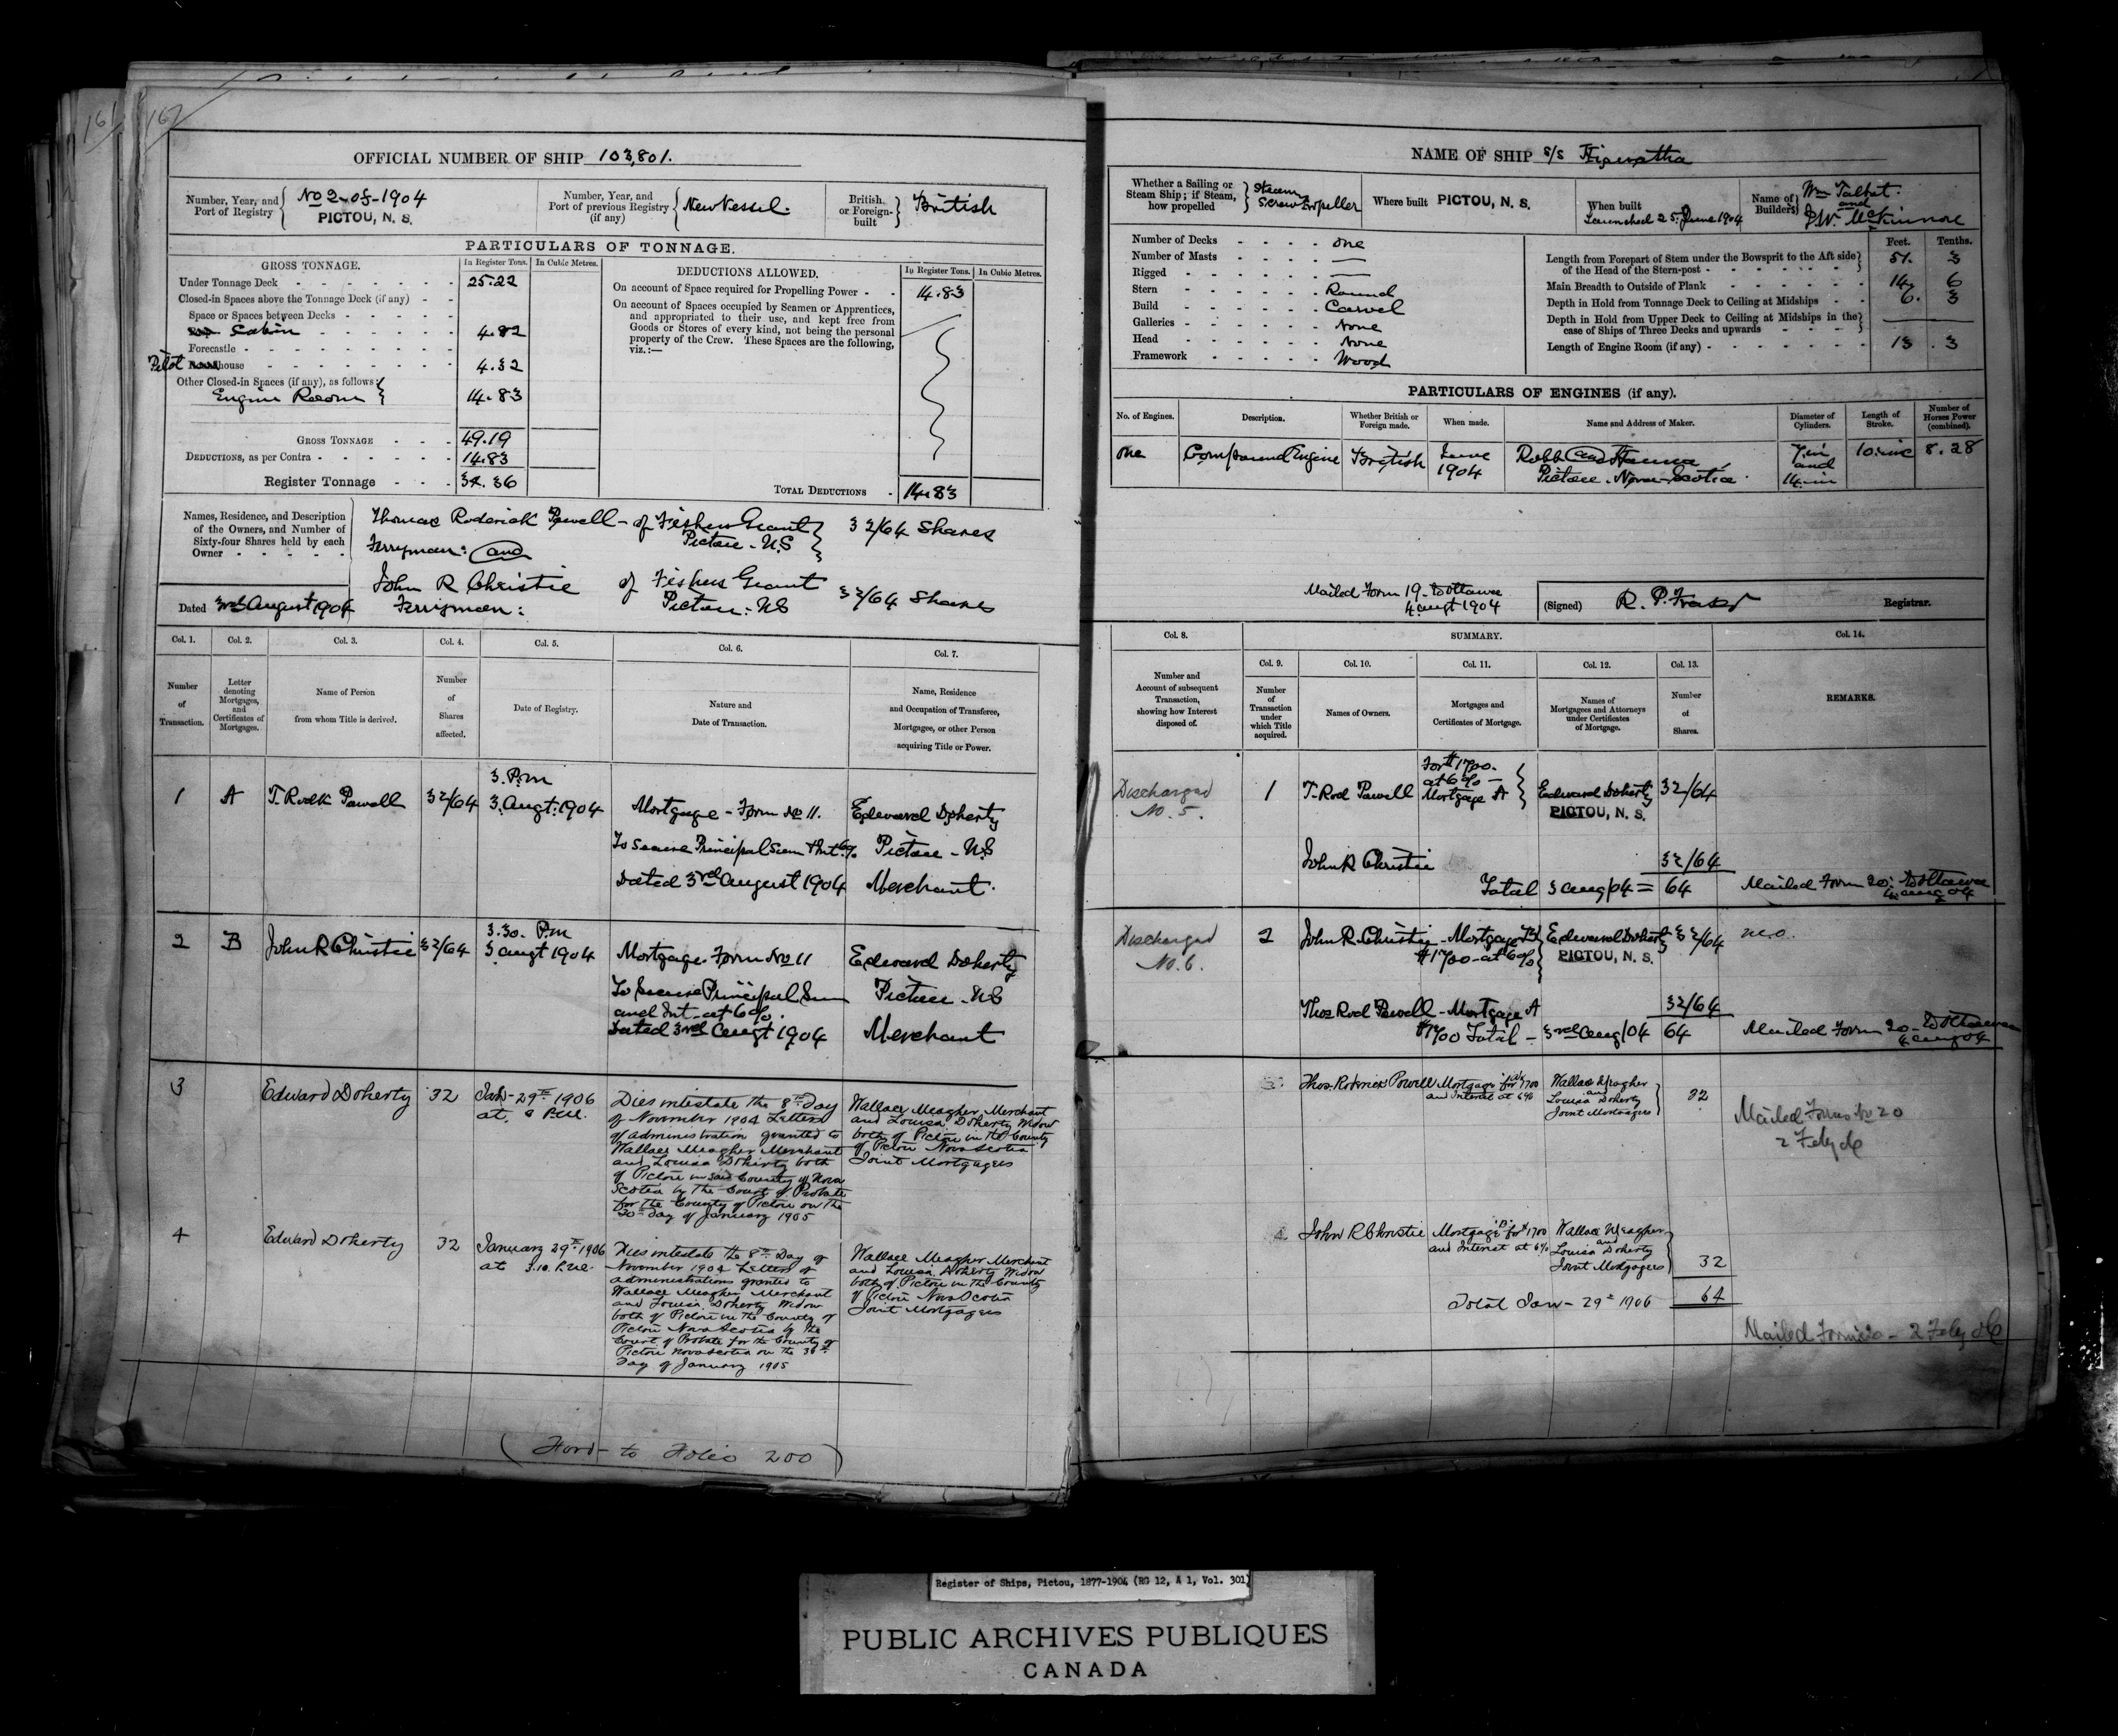 167
OFFICIAL NUMBER OF SHIP 103,801.
Number, Year, and Port of Registry
No 2 of 1904
PICTOU, N. S.
Number, Year, and Port of previous Registry (if any)
New Vessel.
British or Foreign-built
British
PARTICULARS OF TONNAGE.
GROSS TONNAGE.
In Register Tons.
In Cubic Metres.
Under Tonnage Deck 25.22
Closed-in Spaces above the Tonnage Deck (if any)
Space or Spaces between Decks
Cabin 4.82
Forecastle
Pilot house 4.32
Other Closed-in Spaces (if any), as follows:
Engine Room 14.83
GROSS TONNAGE 49.19
DEDUCTIONS, as per Contra 14.83
Register Tonnage 34.36
DEDUCTIONS ALLOWED.
In Register Tons.
In Cubic Metres.
On account of Space required for Propelling Power 14.83
On account of Spaces occupied by Seamen or Apprentices,
and appropriated to their use, and kept free from
Goods or Stores of every kind, not being the personal
property of the Crew. These Spaces are the following,
viz.:—
TOTAL DEDUCTIONS 14.83
Names, Residence, and Description
of the Owners, and Number of
Sixty-four Shares held by each
Owner
Thomas Roderick Powell - of Fishers Grant 32/64 Shares
Pictou - N.S
Ferryman: and
John R Christie of Fishers Grant 32/64 Shares
Ferryman: Pictou: NS
Dated 3rd August 1904
Col. 1.
Number of Transaction.
Col. 2.
Letter denoting Mortgages, and Certificates of Mortgages.
Col. 3.
Name of Person from whom Title is derived.
Col. 4.
Number of Shares affected.
Col. 5.
Date of Registry.
Col. 6.
Nature and Date of Transaction.
Col. 7.
Name, Residence and Occupation of Transferee, Mortgagee, or other Person acquiring Title or Power.
1 A T. Rodk Powell 32/64
3. P.m
3. Augt. 1904
Mortgage - Form No 11.
To Secure Principal Sum & Int. 6%
Dated 3rd August 1904
Edward Doherty
Pictou - N.S
Merchant.
2 B John R Christie 32/64
3.30. P.m
3 augt 1904
Mortgage. Form No 11
To Secure Principal Sum
and Int. at 6%.
Dated 3rd Augt 1904
Edward Doherty
Pictou - NS
Merchant
3 Edward Doherty 32
Jan - 29th 1906
Dies intestate the 8th Day
of November 1904 Letters
of administration granted to
Wallace Meagher Merchant
and Louisa Doherty both
of Pictou in said County of Nova
Scotia by the Court of Probate
for the County of Pictou on the
Day of January 1905
Wallace Meagher Merchant
and Louisa Doherty Widow
both of Pictou in the County
of Pictou Nova Scotia
Joint Mortgagees
4 Edward Doherty 32
January 29th 1906
at 3.10. P.M.
Dies intestate the 8th Day of
November 1904 Letters of
administrations granted to
Wallace Meagher Merchant
and Louisa Doherty Widow
both of Pictou in the County of
Pictou Nova Scotia by the
Court of Probate for the County of
Pictou Nova Scotia on the
Day of January 1905
Wallace Meagher Merchant
and Louisa Doherty Widow
both of Pictou in the County
of Pictou Nova Scotia
Joint Mortgagees
(Ford - to Folio 200)
NAME OF SHIP s/s Hiawatha
Whether a Sailing or Steam Ship; if Steam, how propelled
Steam Screw Propeller
Where built PICTOU, N. S.
When built
Launched 25. June 1904
Name of Builders
Wm Talbot.
and
J.W. McKinnon
Number of Decks one
Number of Masts —
Rigged —
Stern Round
Build Carvel
Galleries None
Head None
Framework Wood
Feet. Tenths.
Length from Forepart of Stem under the Bowsprit to the Aft side
of the Head of the Stern-post 51. 3
Main Breadth to Outside of Plank 14. 6
Depth in Hold from Tonnage Deck to Ceiling at Midships 6. 3
Depth in Hold from Upper Deck to Ceiling at Midships in the
case of Ships of Three Decks and upwards
Length of Engine Room (if any) 13. 3
PARTICULARS OF ENGINES (if any).
No. of Engines.
Description.
Whether British or Foreign made.
When made.
Name and Address of Maker.
Diameter of Cylinders.
Length of Stroke.
Number of Horses Power (combined).
one
Compound Engine
British
June
1904
Robb and Hanna
Pictou. Nova Scotia.
7.in
and
14.in
10.inc
8.28
Mailed Form 19. to Ottawa
4 augt 1904
(Signed) R. P. Fraser Registrar.
Col. 8.
Number and Account of subsequent Transaction, showing how Interest disposed of.
SUMMARY.
Col. 9.
Number of Transaction under which Title acquired.
Col. 10.
Names of Owners.
Col. 11.
Mortgages and Certificates of Mortgage.
Col. 12.
Names of Mortgagees and Attorneys under Certificates of Mortgage.
Col. 13.
Number of Shares.
Col. 14.
REMARKS.
Discharged
No. 5.
1 T. Rod Powell
For $1700.
at 6% -
Mortgage A
Edward Doherty 32/64
PICTOU, N. S.
John R Christie 32/64
Total 3 aug/04 = 64
Mailed Form 20: to Ottawa
4 aug 04
Discharged
No. 6.
2 John R. Christie - Mortgage B Edward Doherty 32/64
$1700 - at 6% PICTOU, N. S.
Thos Rod Powell - Mortgage A 32/64
$1700 Total - 3rd Aug/04 64
Mailed Form 20 - to Ottawa
4 aug 04
3. Thos. Roderick Powell
Mortgage "A" for $1700
and Interest at 6%
Wallace Meagher
and
Louisa Doherty
Joint Mortgagees
32
Mailed Forms No 20
2 Feby 06
4 John R Christie
Mortgage "B" for $1700
and Interest at 6%
Wallace Meagher
and
Louisa Doherty
Joint Mortgagees
32
Total Jan - 29th 1906 64
Mailed Form 20 - 2 Feby 06
Register of Ships, Pictou, 1877-1904 (RG 12, A 1, Vol. 301)
PUBLIC ARCHIVES PUBLIQUES
CANADA